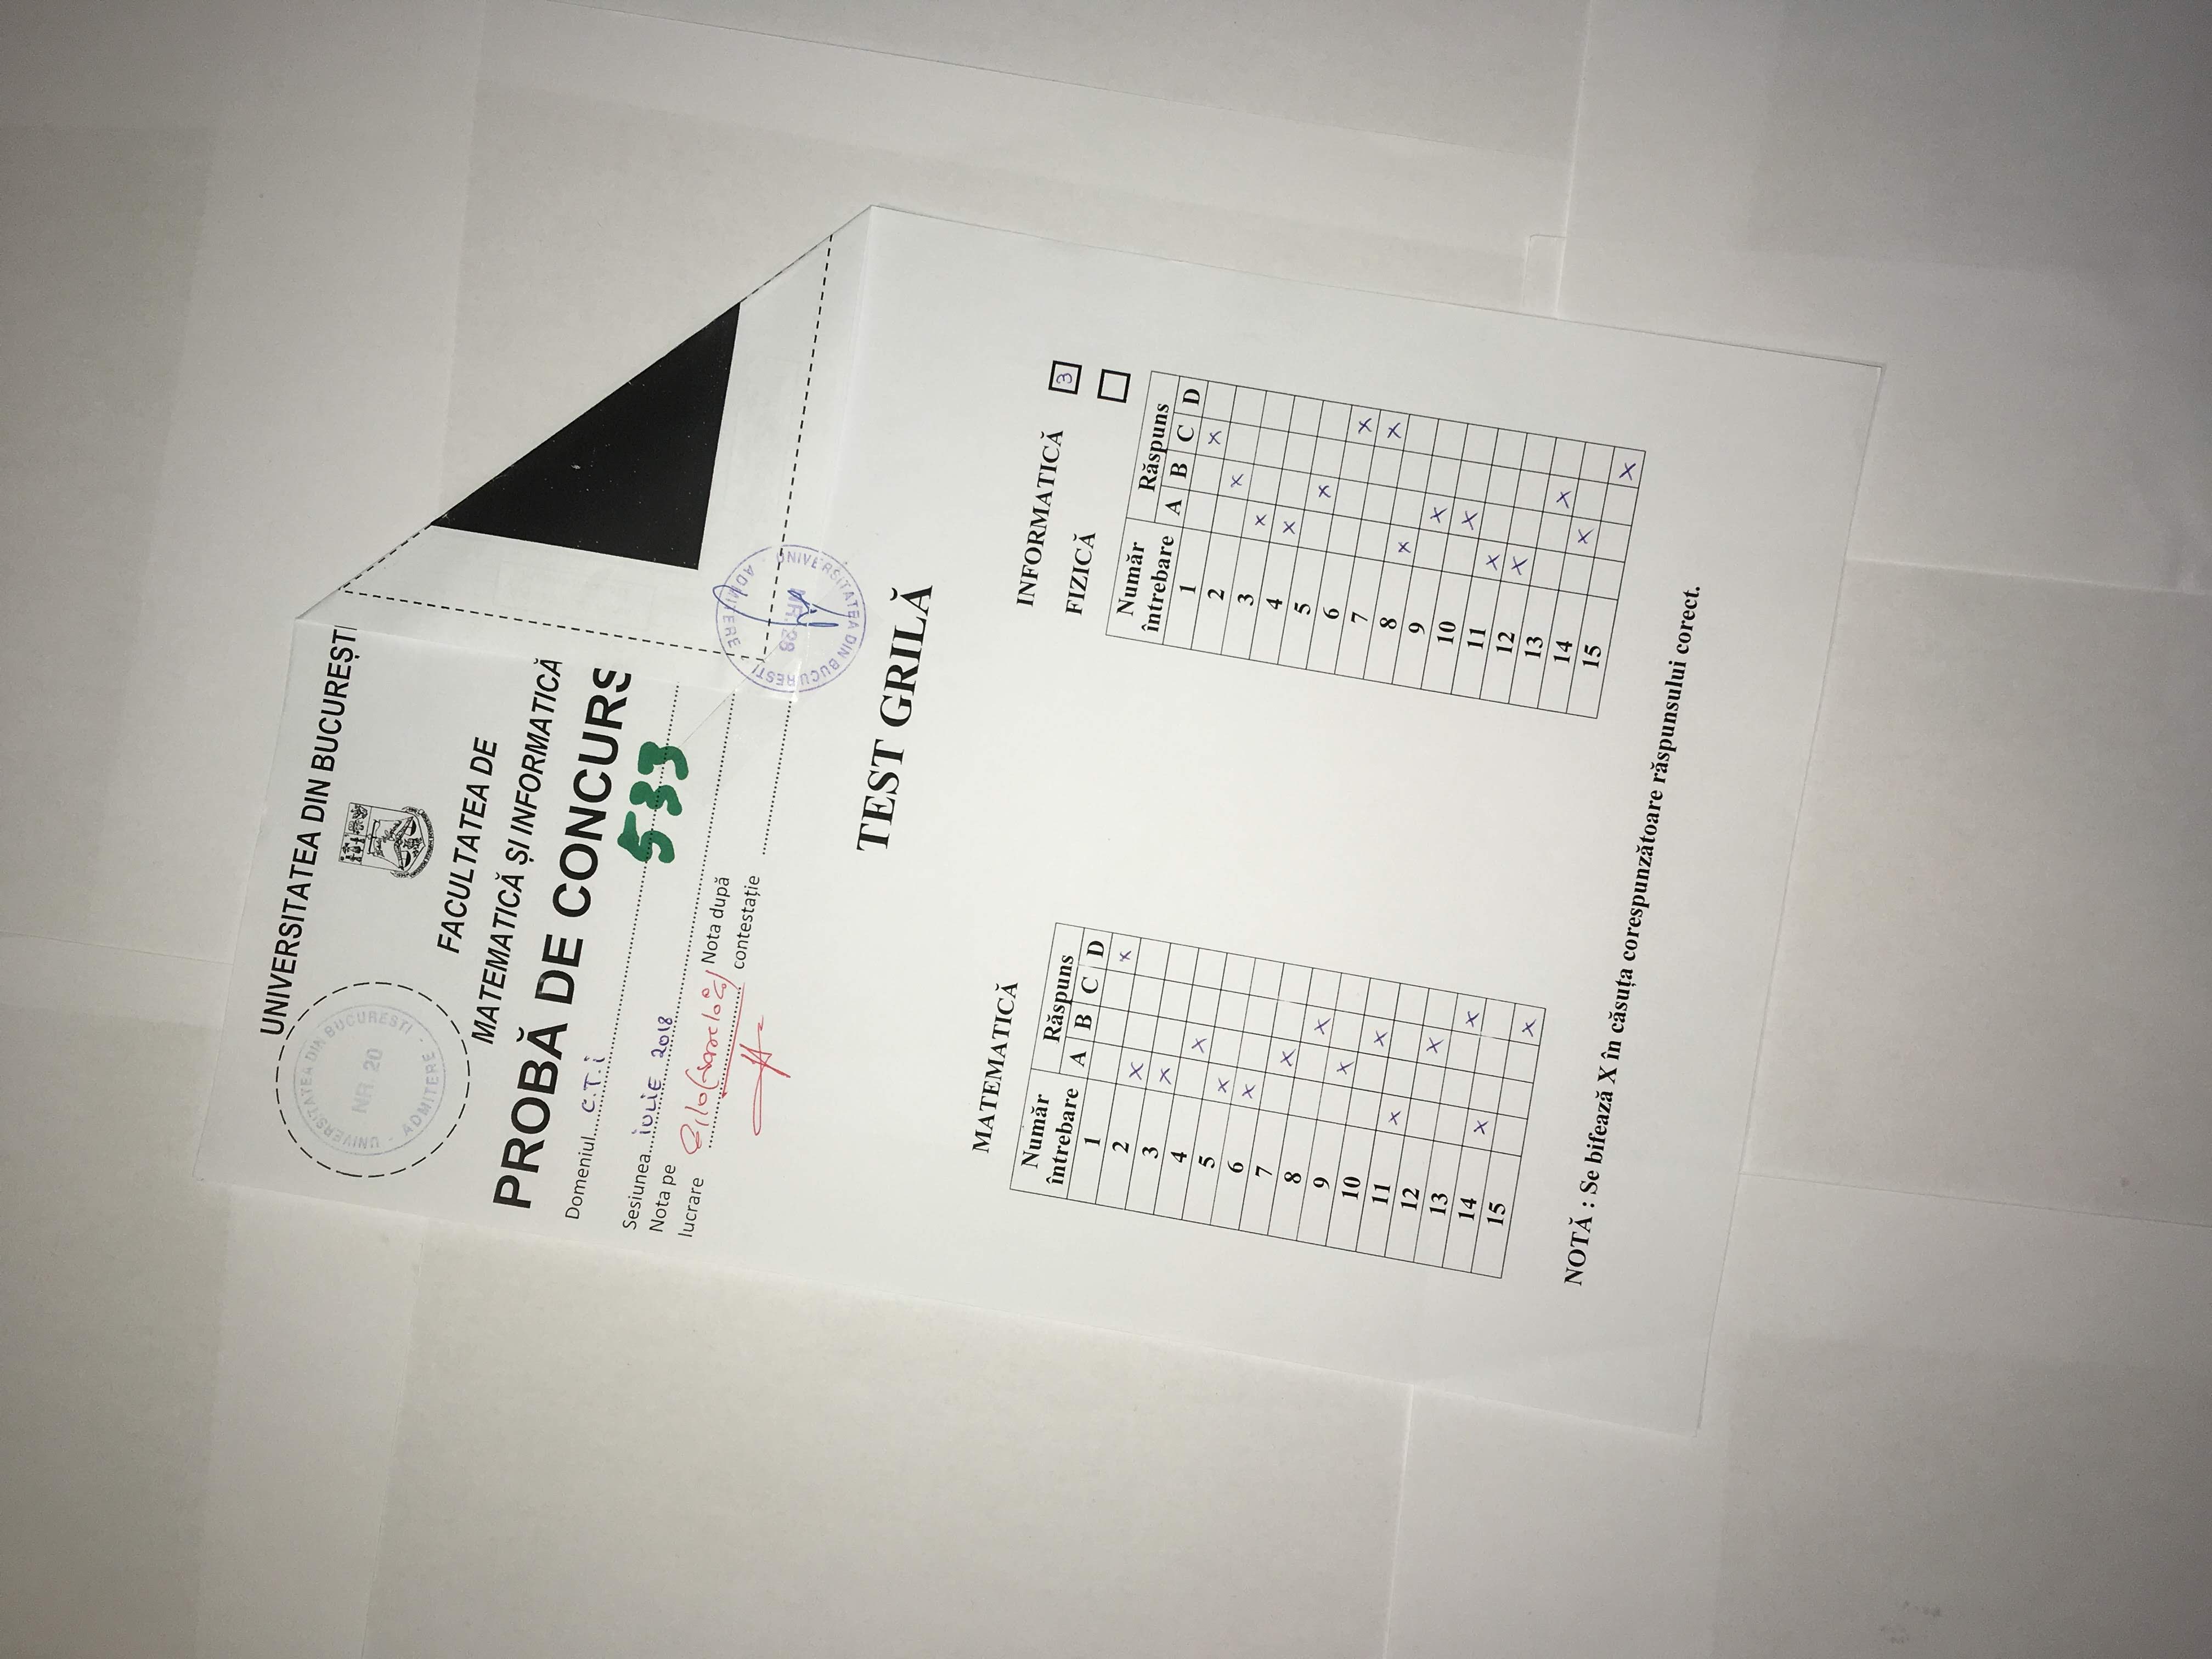 UNIVERSITATEA DIN BUCUREȘTI
UNIVERSITATEA DIN BUCURESTI
NR. 20
ADMITERE
FACULTATEA DE
MATEMATICĂ ȘI INFORMATICĂ
PROBĂ DE CONCURS
Domeniul C.T.i
533
Sesiunea iULiE 2018
Nota pe
lucrare
Nota după
contestație
UNIVERSITATEA DIN BUCURESTI
NR. 28
ADMITERE
TEST GRILĂ
MATEMATICĂ
Număr
întrebare
Răspuns
A B C D
1 x
2 x
3 x
4 x
5 x
6 x
7 x
8 x
9 x
10 x
11 x
12 x
13 x
14 x
15 x
INFORMATICĂ 3
FIZICĂ
Număr
întrebare
Răspuns
A B C D
1 x
2 x
3 x
4 x
5 x
6 x
7 x
8 x
9 x
10 x
11 x
12 x
13 x
14 x
15 x
NOTĂ : Se bifează X în căsuța corespunzătoare răspunsului corect.